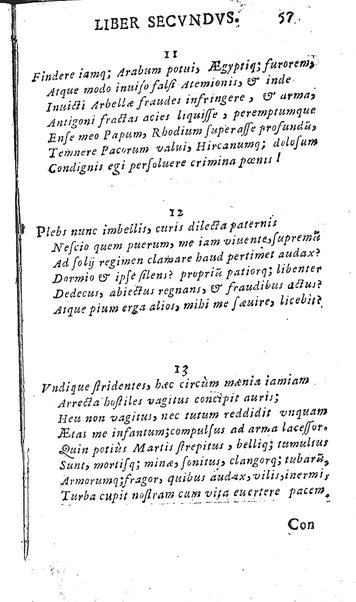 LIBER SECVNDVS. 57
11
Findere iamq; Arabum potui, Ægyptiq; furorem,
Atque modo inuiso falsi Atemionis, & inde
Inuicti Arbellæ fraudes infringere, & arma,
Antigoni fractas acies liquisse, peremptumque
Ense meo Papum, Rhodium superasse profundū,
Temnere Pacorum valui, Hircanumq; dolosum
Condignis egi persoluere crimina pœnis!
12
Plebs nunc imbellis, curis dilecta paternis
Nescio quem puerum, me iam viuente, supremū
Ad solij regimen clamare haud pertimet audax?
Dormio & ipse silens? propriū patiorq; libenter
Dedecus, abiectus regnans, & fraudibus actus?
Atque pium erga alios, mihi me sæuire, licebit?
13
Vndique stridentes, hæc circùm mænia iamiam
Arrecta hostiles vagitus concipit auris;
Heu non vagitus, nec tutum reddidit vnquam
Ætas me infantum; compulsus ad arma lacessor.
Quin potiùs Martis strepitus, belliq; tumultus
Sunt, mortisq; minæ, sonitus, clangorq; tubarū,
Armorumq; fragor, quibus audax, vilis, inermis
Turba cupit nostram cum vita euertere pacem.
Con